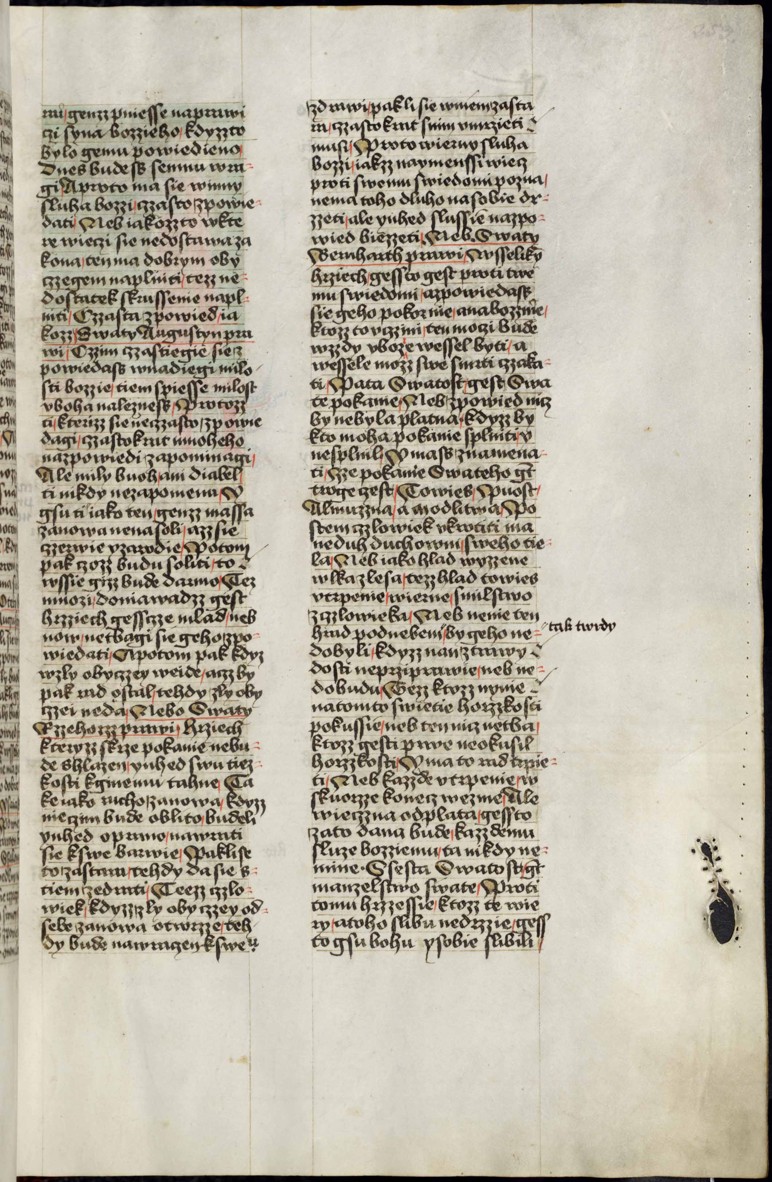 rni genz pniesse naprawi
czi syna bozzieho kdyzzto
bylo gemu powiedieno
Dnes budess semnu wra-
gi Aproto ma sie winny
sluha bozzi czzasto zpowie-
dati Neb iakozzto wkte
re wieczi sie nedostawa za
kona ten ma dobrym oby
czzegem naplniti tezz ne-
dostatek skrussenie napl-
niti Czzasta zpowied ia
kozz Swaty Augustyn pra
wi Czzim czzastiegie sie z
powiedass wnadiegi milo-
sti bozzie tiem spiesse milost
vboha nalezness Protozz
ti kterizz sie neczzasto zpowie
dagi czzastokrat mnoheho
nazpowiedi zapominagi
Ale mily buoh ani diabel
ti nikdy nezapomenu W
gsu ti iako ten genzz massa
zanowa nenasoli azz sie
czzerwie vzarodie Potom
pak czozz budu soliti to
wssie gizz bude darmo Tez
mnozi domawadzz gest
hrziech gesscze mlad neb
now netbagi sie geho zpo-
wiedati Apotom pak kdyz
wzly obyczzey weide aczz by
pak rad ostal tehdy zly oby
czzei neda Nebo Swaty
Rzzehorzz prawi hrziech
kteryzz skrze pokanie nebu-
de shlazen yuhed swu tiez-
kosti kginemu tahne Ta
ke iako rucho zanowa kdyzz
nieczim bude oblito budeli
yuhed oprano nawrati
sie kswe barwie Paklise
to zastara tehdy da sie s-
tiem zedrati Teezz czzlo-
wiek kdyzz zly obyczzey od-
sebe zanowa otwrzze teh-
dy bude nawrazen kswe u
zdrawi pakli sie wniem zasta
ra czzastokrat snim vmrzieti
musi Proto wierny sluha
bozzi iakzz naymenssi wiecz
proti swemu swiedomi pozna
nema toho dluho nasobie dr-
zzeti ale yuhed slussie nazpo-
wied biezzeti Neb Swaty
Bernharth prawi Wsseliky
hrziech gessto gest proti twe
mu swiedomi azpowiedass
sie geho pokornie anabozznie
ktozz to vczini ten moczi bude
wzzdy vboze wessel byti a
wessele mozz swe smrti czzaka-
ti Pata Swatost gest Swa
te pokanie Neb zpowied nicz
by nebyla platna kdyzz by
kto moha pokanie splniti y
nesplnil Vmass znamena-
ti zze pokanie Swateho gt
troge gest Towies Puost
Almuzzna a modlitwa Po
stem czzlowiek vkrotiti ma
neduh duchowni sweho tie-
la Neb iako hlad wyzzene
wlka zlesa tezz hlad towies
vtrpenie wierne smilstwo
zczzlowieka Neb nenie ten
hrad podnebem by geho ne- tak twrdy
dobyli kdyzz nan ztrawy
dosti neprziprawie neb ne-
dobudu Tezz ktozz nynie
natomto swietie horzkosti
pokussie neb ten nicz netba
ktozz gesti prwe neokusil
horzkosti Vma to rad trpie-
ti Neb kazzde vtrpenie w
skuorzze konecz wezme Ale
wieczzna odplata gessto
zato dana bude kazzdemu
sluze bozziemu ta nikdy ne-
mine Ssesta Swatost gt
manzelstwo swate Proti
tomu hrzzessie ktozz te wie
ry atoho slibu nedrzzie gess
to gsu bohu ysobie slibili